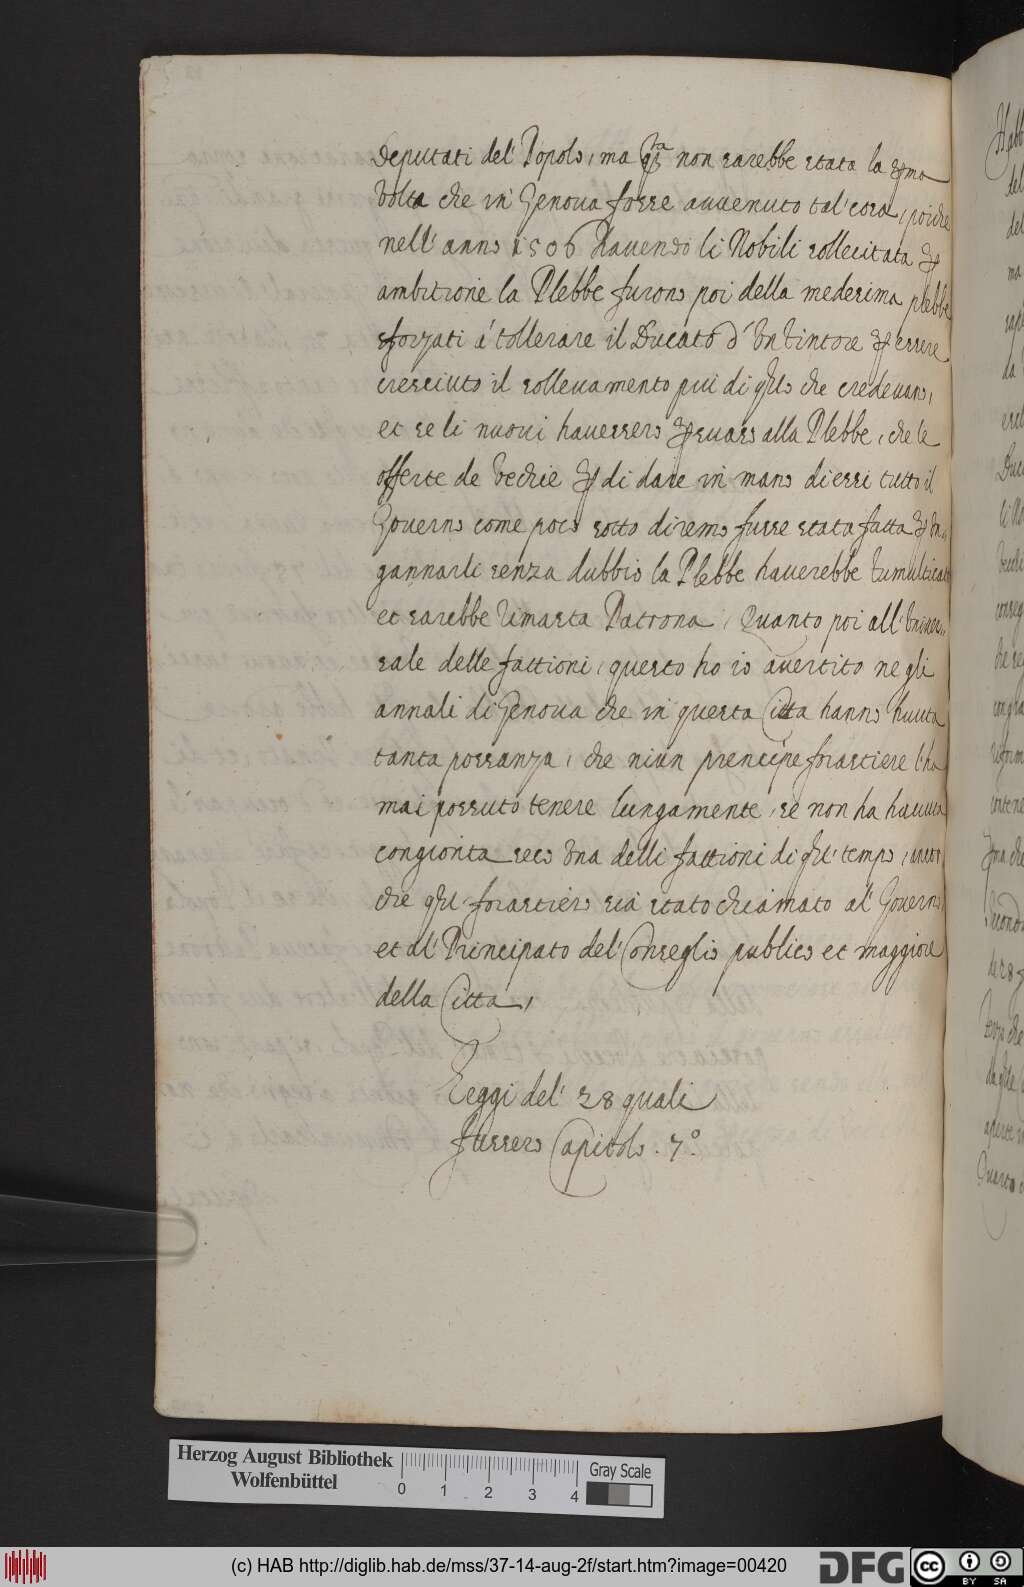 Deputati del' Popolo, ma q.ta non sarebbe stata la p.ma
volta che in Genova fosse avvenuto tal' cosa, poiche
nell' anno 1506 havendo li Nobili sollecitata p
ambitione la Plebbe furono poi della medesima plebbe
sforzati á tollerare il Ducato d' un tintore p essere
cresciuto il sollevamento piú di q.llo che credevano,
et se li nuovi havessero p suaso alla Plebbe, che le
offerte de vechie p di dare in mano di essi tutto il
Governo come poco sotto diremo fusse stata fatta p in,,
gannarli senza dubbio la Plebbe haverebbe tumulticato
et sarebbe rimasta Patrona, Quanto poi all' univer,,
sale delle fattioni, questo ho io avertito ne gli
annali di Genova che in questa Citta hanno havuta
tanta possanza, che niun prencipe forastiere l'ha
mai possuto tenere lungamente, se non ha havuta
congionta seco una delli fattioni di q.ll' tempo, ancor
che q.ll' forastiero sia stato chiamato al' Governo,
et al' Principato del' Conseglio publico et maggiore
della Citta,
Leggi del' 28 quali
fussero Capitolo. 7.º
Habb
del
del
ma
la
Duc
li No
vecchi
conseg
che
con gl
riform
conten
p ma che
Secondo
de 28
Terzo che
Quarto
Herzog August Bibliothek
Wolfenbüttel
0 1 2 3 4
Gray Scale
(c) HAB http://diglib.hab.de/mss/37-14-aug-2f/start.htm?image=00420
DFG
cc BY SA